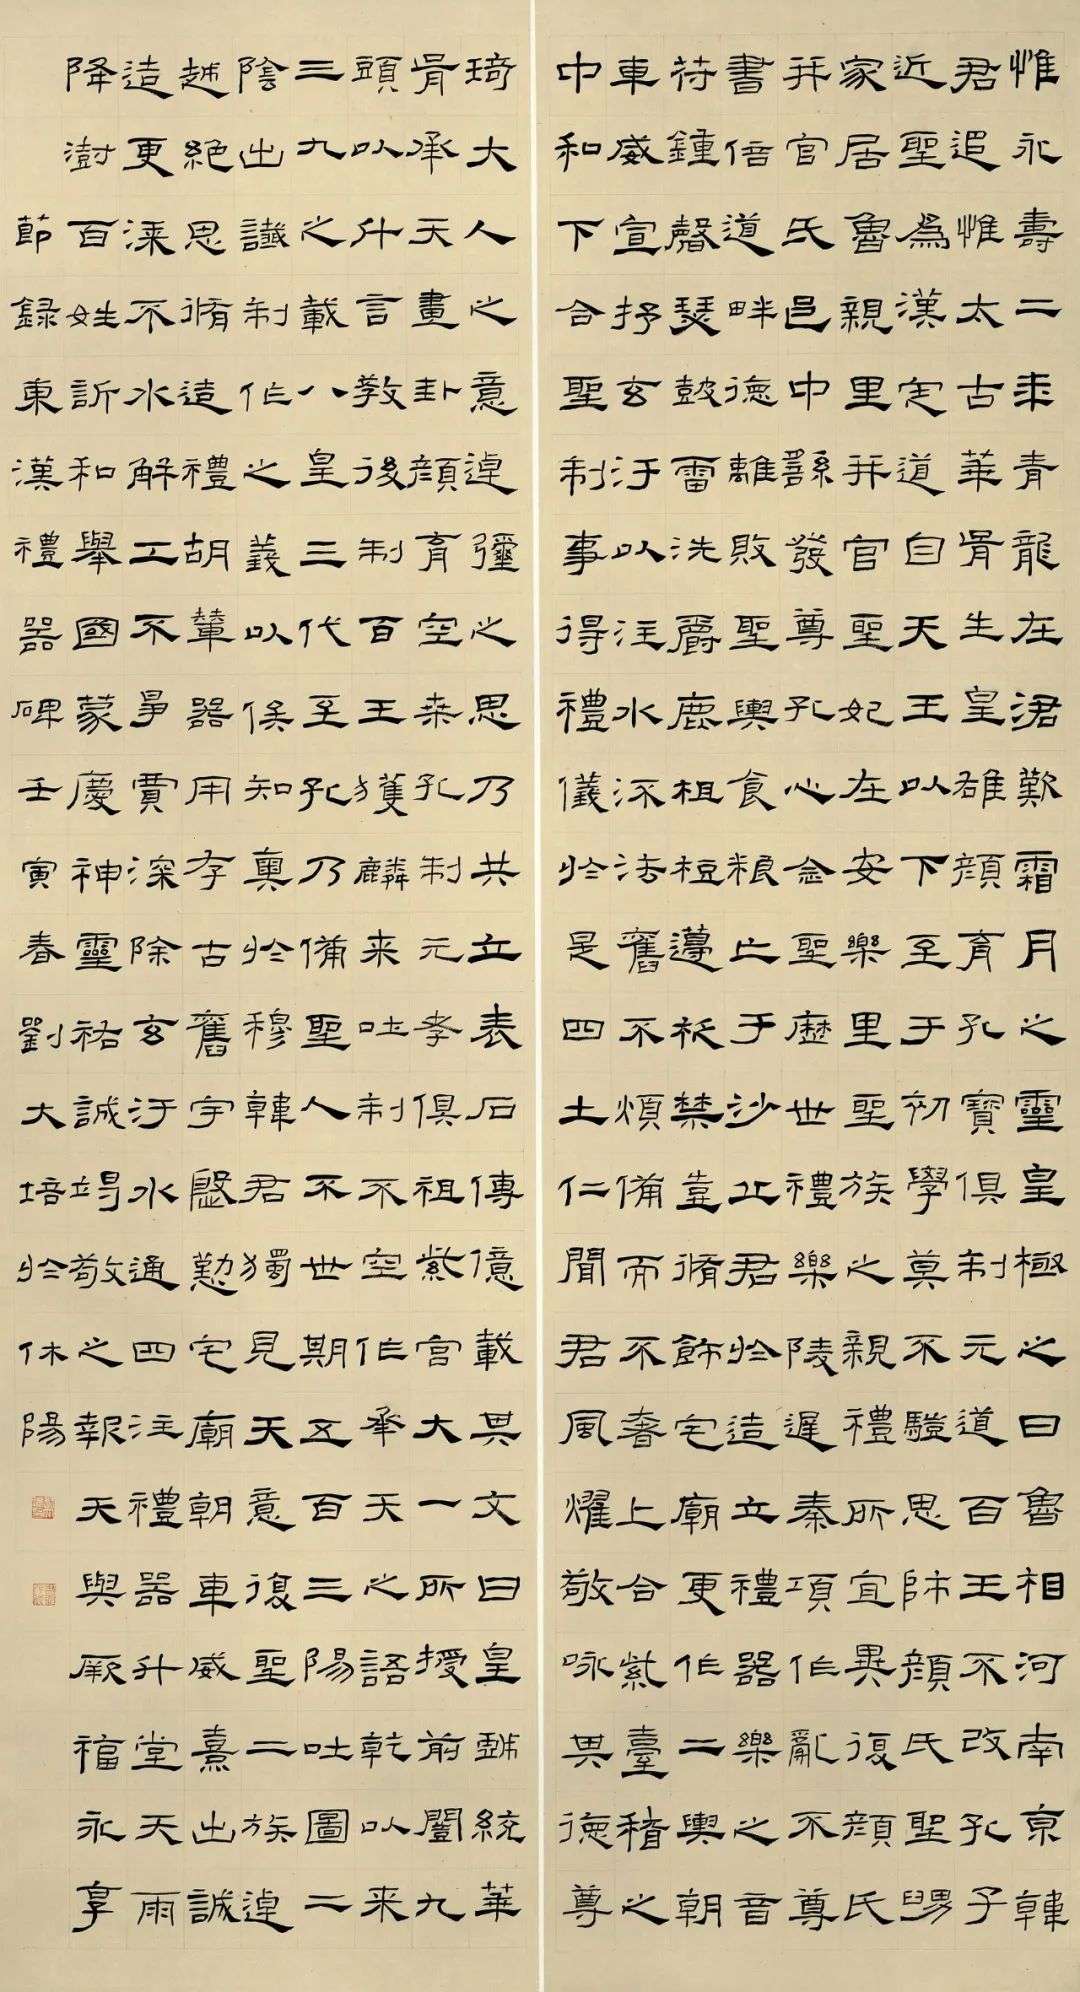 惟永壽二年青龍在涒歎霜月之靈皇極之日魯相河南京韓
君追惟太古華胥生皇雄顏育孔寶俱制元道百王不改孔子
近聖為漢定道自天王以下至于初學莫不驥思師顏氏聖舅
家居魯親里并官聖妃在安樂里聖族之親禮所宜異復顏氏
并官氏邑中繇發尊孔心念聖歷世禮樂陵遲秦項作亂不尊
書倍道畔德離敗聖輿食粮亡于沙丘君於造立禮器樂之音
符鍾磬瑟鼓雷洗爵鹿柤梪籩柉禁壺脩飾宅廟更作二輿朝
車威宣抒玄汙以注水流法舊不煩備而不奢上合紫臺稽之
中和下合聖制事得禮儀於是四土仁聞君風燿敬咏其德尊
琦大人之意逴彌之思乃共立表石傳億載其文曰皇戲統華
胥承天畫卦顏育空桑孔制元孝俱祖紫宮大一所授前闓九
頭以升言教後制百王獲麟來吐制不空作承天之語乾以來
三九之載八皇三代至孔乃備聖人不世期五百三陽吐圖二
陰出讖制作之義以俟知奧於穆韓君獨見天意復聖二族逴
越絕思脩造禮胡輦器用存古舊宇殷勤宅廟朝車威熹出誠
造更漆不水解工不爭賈深除玄汙水通四注禮器升堂天雨
降澍百姓訢和舉國蒙慶神靈祐誠竭敬之報天與厥福永享
節錄東漢禮器碑壬寅春劉大培於休陽